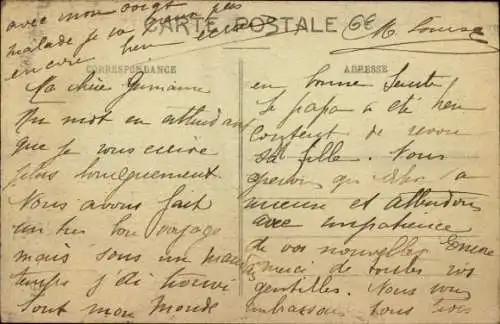 avec mon doigt pas
malade je va
encore bien écrire
CARTE POSTALE
6€
M Louise
CORRESPONDANCE
Ma chère Germaine
Un mot en attendant
que je vous écrive
plus longuement.
Nous avons fait
un très bon voyage
mais sous un mauvais
temps j'ai trouvé
tout mon monde
ADRESSE
en bonne Santé
le papa a été heu
content de revoir
sa fille. Nous
espérons que a
mieux et attendons
avec impatience
de vos nouvelles Encore
merci de toutes vos
gentilles. Nous vous
embrassons tous trois